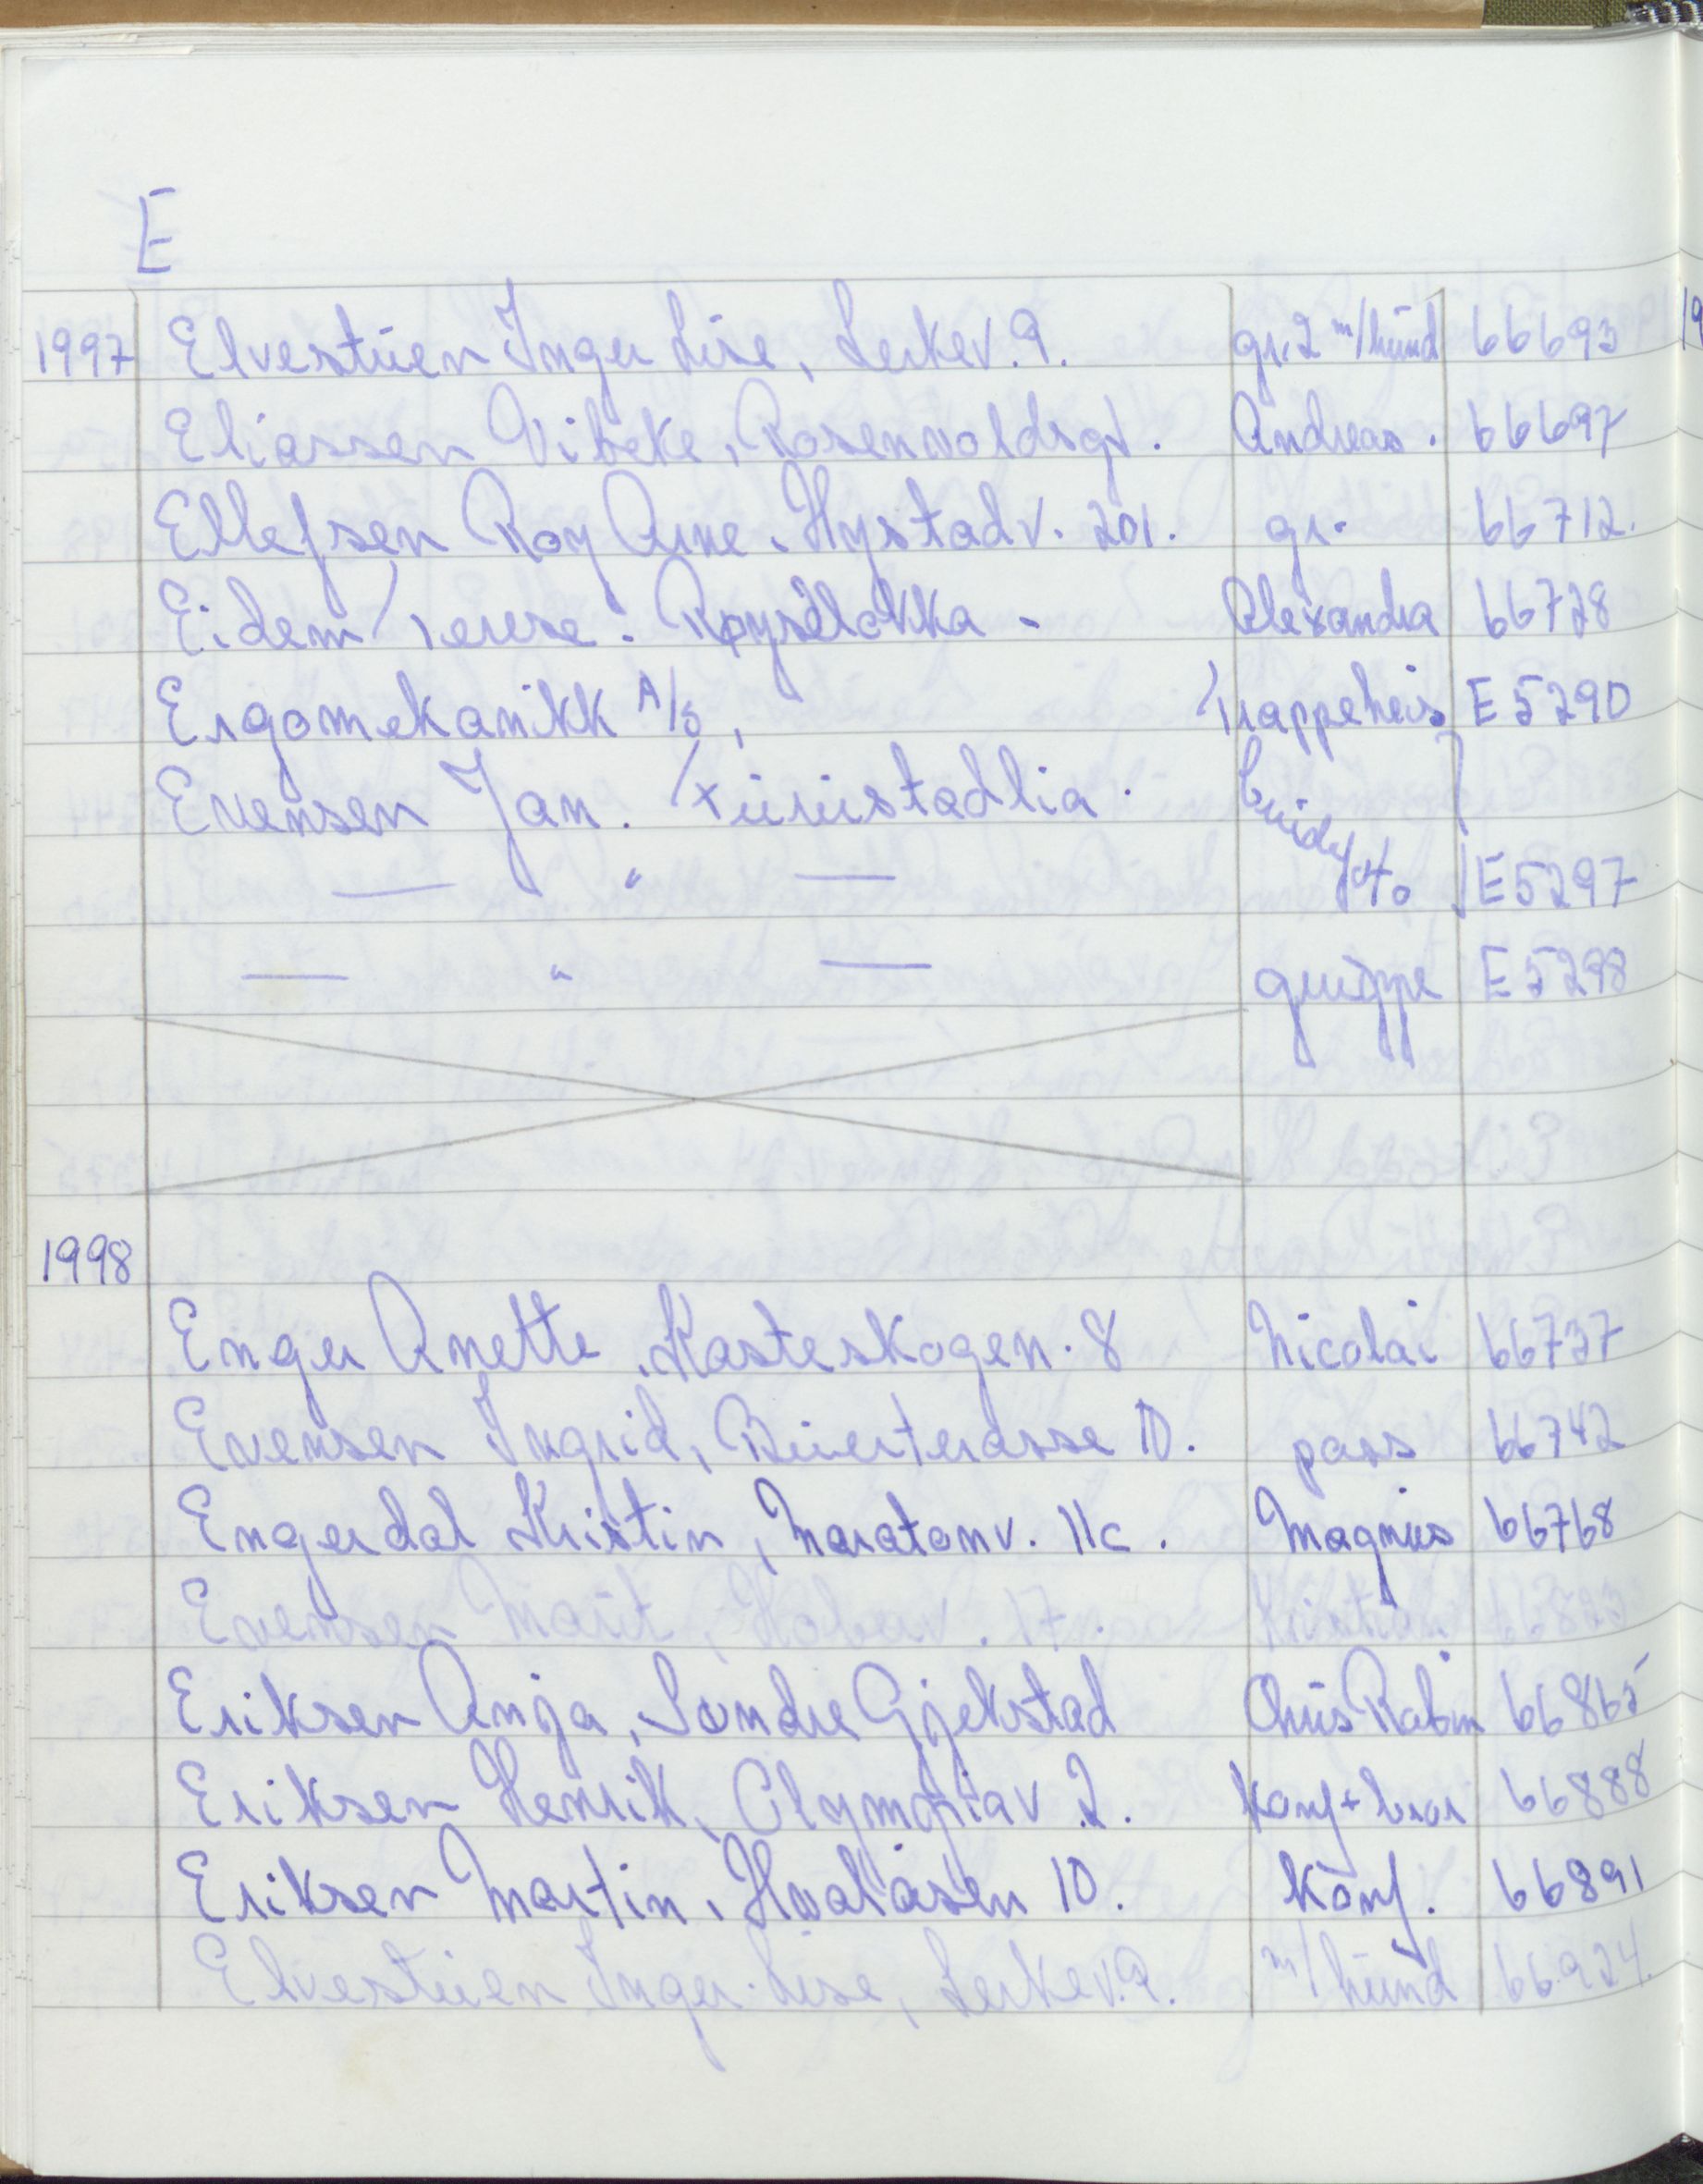 E
1997 Elvestuen Inger Lise, Lerkev. 9. gr. 2 m/hund 66693
Eliassen Vibeke, Rosenvoldsgt. Andreas. 66697
Ellefsen Roy Arne. Hystadv. 201. gr. 66712.
Eidem Terese. Røyseløkka - Alexandra 66728
Ergomekanikk A/S, Trappeheis E 5290
Evensen Jan. Furustadlia. brudef
— " — foto E 5297
— " — gruppe E 5298
1998
Enger Anette, Kasteskogen. 8 Nicolai 66737
Evensen Ingrid, Bueterasse 10. pass 66742
Engerdal Kristin, Maratonv. 11c. Magnus 66768
Evensen Marit, 17. Kristian 66823
Eriksen Anja, Søndre Gjekstad Chris Robin 66865
Eriksen Henrik, Olympiav 2. Konf + bror 66888
Eriksen Martin, Hvalåsen 10. Konf. 66891
Elvestuen Inger-Lise, Lerkev. 9. m/hund 66924.